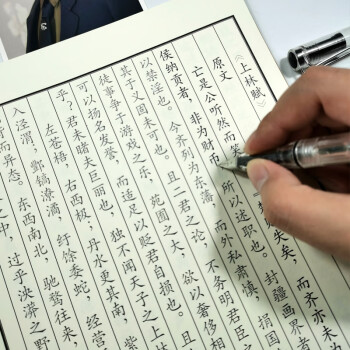 《上林赋》
原文
亡是公听然而笑 失矣，而齐亦未为
侯纳贡者，非为财币，所以述职也。封疆画界者
以禁淫也。今齐列为东藩，而外私肃慎，捐国
其于义固未可也。且二君之论，不务明君臣之
徒事争于游戏之乐，苑囿之大，欲以奢侈相
可以扬名发誉，而适足以贬君自损也。且
乎？君未睹夫巨丽也，独不闻天子之上林
左苍梧，右西极，丹水更其南，紫
入泾渭，酆镐潦潏，纡馀委蛇，经营
而异态。东西南北，驰骛往来，
之中，过乎泱漭之野